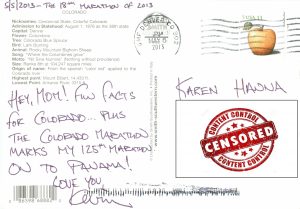 5/5/2013 - THE 18TH MARATHON OF 2013
COLORADO
Nicknames: Centennial State, Colorful Colorado
Admission to Statehood: August 1, 1876 as the 38th state
Capital: Denver
Flower: Columbine
Tree: Colorado Blue Spruce
Bird: Lark Bunting
Animal: Rocky Mountain Bighorn Sheep
Song: "Where the Columbines grow"
Motto: Nothing without Providence
Origin of name: From the Spanish "color red" applied to
the Colorado river
Highest point:
Mount Elbert, 14,431 ft.
Lowest point:
HEY, MOM! FUN FACTS
FOR COLORADO... PLUS
THE COLORADO MARATHON
MARKS MY 125TH MARATHON
ON TO PANAMA!
LOVE YOU
DENVER CO
2013
KAREN HANNA
CONTENT CONTROL
CENSORED
CONTENT CONTROL